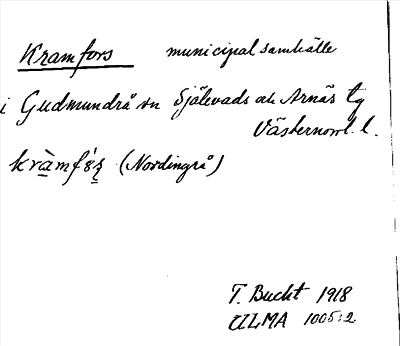 Kramfors municipalsamhälle
i Gudmundrå sn Själevads och Arnäs tg
Västernorrl. l.
kràmfó̤ʂ (Nordingrå)
T. Bucht 1918
ULMA 1005:2